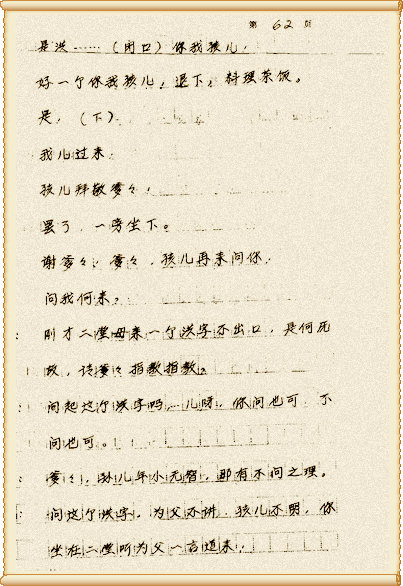 第 62 页
是洪……（闭口）你我孩儿，
好一个你我孩儿，退下，料理茶饭。
是，（下）
我儿过来，
孩儿拜敬爹々，
罢了，一旁坐下。
谢爹々，爹々，孩儿再来问你，
问我何来。
刚才二堂母亲一个洪字不出口，是何况
故，请爹々指教指教。
问起这个洪字吗，儿呀，你问也可，不
问也可。
爹々，孙儿年小无智，那有不问之理。
问这个洪字，为父不讲，孩儿不明，你
坐在二堂听为父一言道来，